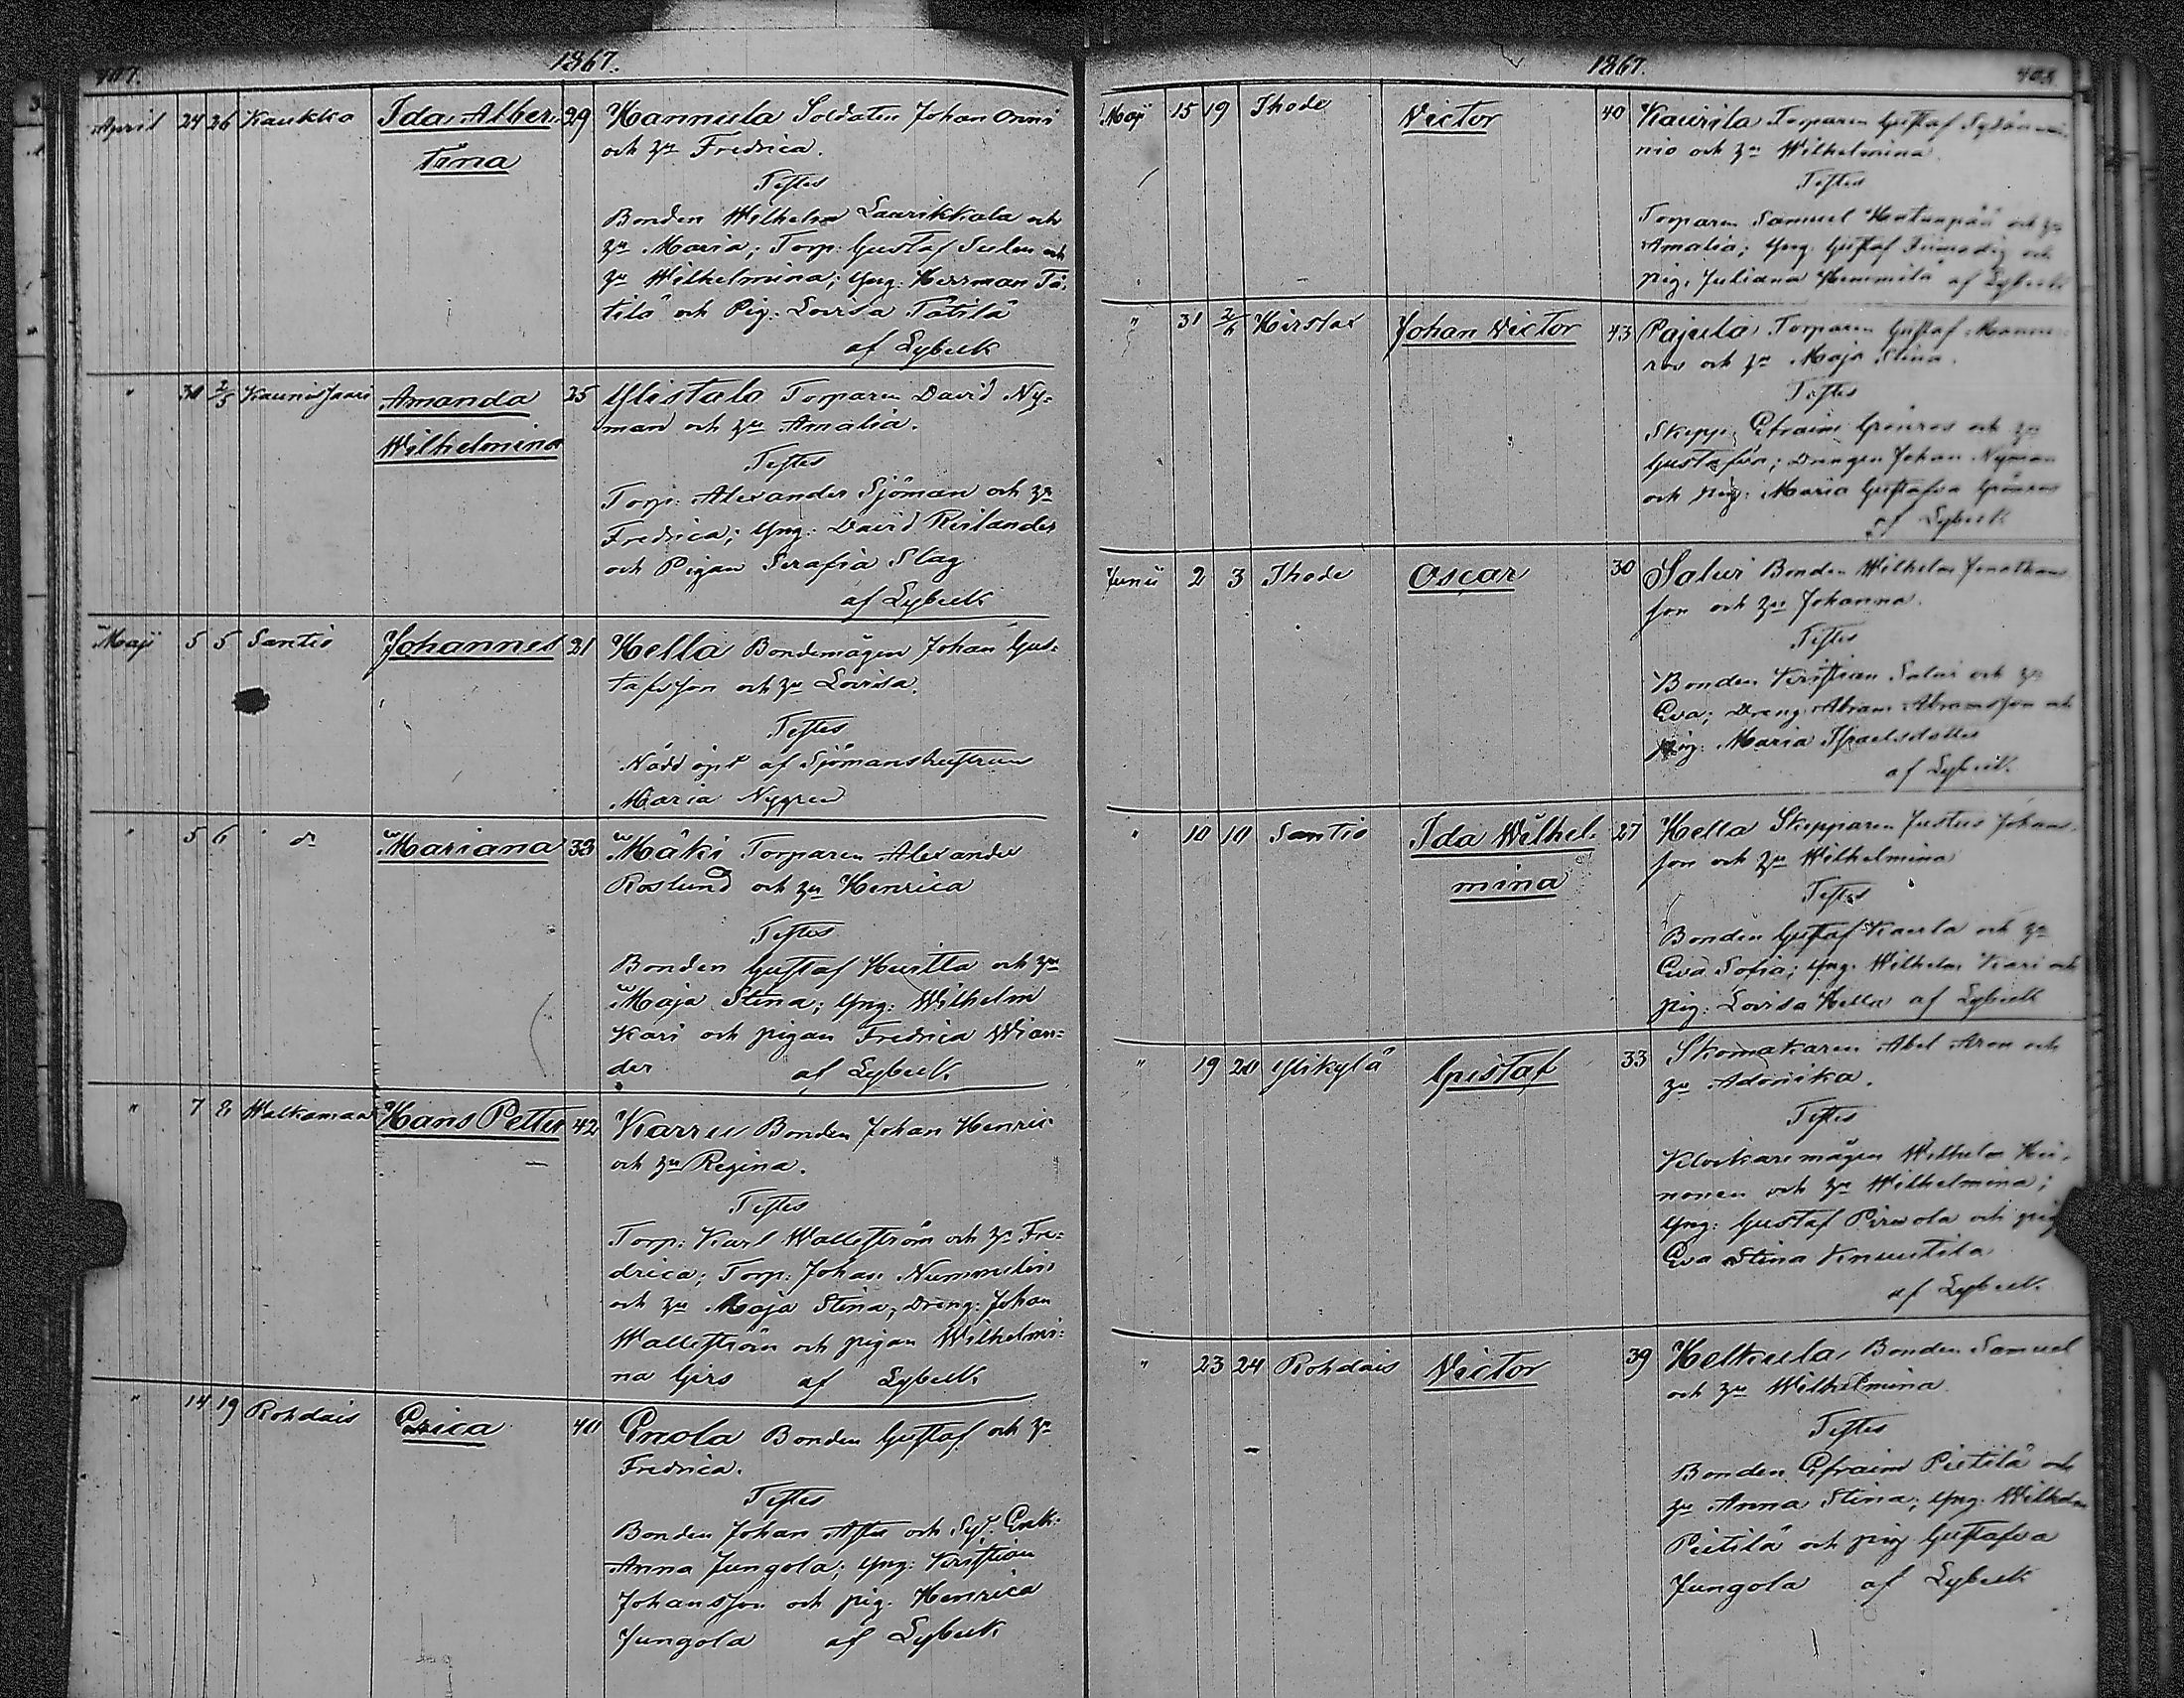 407.
1867.
April 24 26 Kaukka Ida Alber= 29 Hannula Soldaten Johan Onni
tina och hu Fredrica.
Testes
Bonden Wilhelm Laurikkala och
hu Maria; Torp: Gustaf Selen och
hu Wilhelmina; Yng: Herrman Tä=
tilä och Pig: Lovisa Tätilä
af Lybeck
" 30 2/5 Kaunissaari Amanda 25 Ylistalo Torparen David Ny=
Wilhelmina man och hu Amalia.
Testes
Torp: Alexander Sjöman och hu
Fredrica; Yng: David Reilander
och Pigan Serafia Slag
af Lybeck
Maji 5 5 Santio Johannes 21 Hella Bondemågen Johan Gus=
tafsson och hu Lovisa.
Testes
Nöddöpt af Sjömanshustrun
Maria Nygren
" 5 6 " d:o Mariana 33 Mäki Torparen Alexander
Roslund och hu Henrica
Testes
Bonden Gustaf Heitta och hu
Maja Stina; Yng: Wilhelm
Kari och pigan Fredrica Wian=
der af Lybeck
" 7 8 Walkamaa Hans Petter 42 Karru Bonden Johan Henric
och hu Regina.
Testes
Torp: Karl Walleström och hu Fre=
drica; Torp: Johan Nummelin
och hu Maja Stina; Dreng: Johan
Walleström och pigan Wilhelmi=
na Girs af Lybeck
" 14 19 Rohdais Erica 40 Enola Bonden Gustaf och hu
Fredrica.
Testes
Bonden Johan och Enk:
Anna Jungola; Yng: Kristian
Johansson och pig. Henrica
Jungola af Lybeck
1867.
408
Maji 15 19 Ihode Victor 40 Kaurila Torparen Gustaf
och hu Wilhelmina.
Testes
Torparen Samuel och hu
Amalia; Yng: Gustaf och
pig. Juliana Hemmilä af Lybeck
" 31 2/6 Hirslax Johan Victor 43 Pajula Torparen Gustaf
ros och hu Maja Stina.
Testes
Skepp: Efraim Grönros och hu
Gustafva; Drengen Johan Nyman
och pig: Maria Gustafva Grönros
af Lybeck
Junii 2 3 Ihode Oscar 30 Salui Bonden Wilhelm Jonathans
son och hu Johanna.
Testes
Bonden Kristian Salui och hu
Eva; Dreng: Abram Abramsson och
pig: Maria Israelsdotter
af Lybeck
" 10 10 Santio Ida Wilhel= 27 Hella Skepparen Justus Johans=
mina son och hu Wilhelmina
Testes
Bonden Gustaf Kaurla och hu
Eva Sofia; Yng: Wilhelm Kari och
pig: Lovisa Hella af Lybeck
" 19 20 Ylikylä Gustaf 33 Skomakaren Abel Aron och
hu Adonika.
Testes
Klockaremågen Wilhelm Hei=
nonen och hu Wilhelmina;
Yng: Gustaf Pirvola och pig
Eva Stina Knuutila
af Lybeck
" 23 24 Rohdais Victor 39 Helkula Bonden Samuel
och hu Wilhelmina
Testes
Bonden Efraim Pietilä och
hu Anna Stina; Yng: Wilhelm
Pietilä och pig Gustafva
Jungola af Lybeck